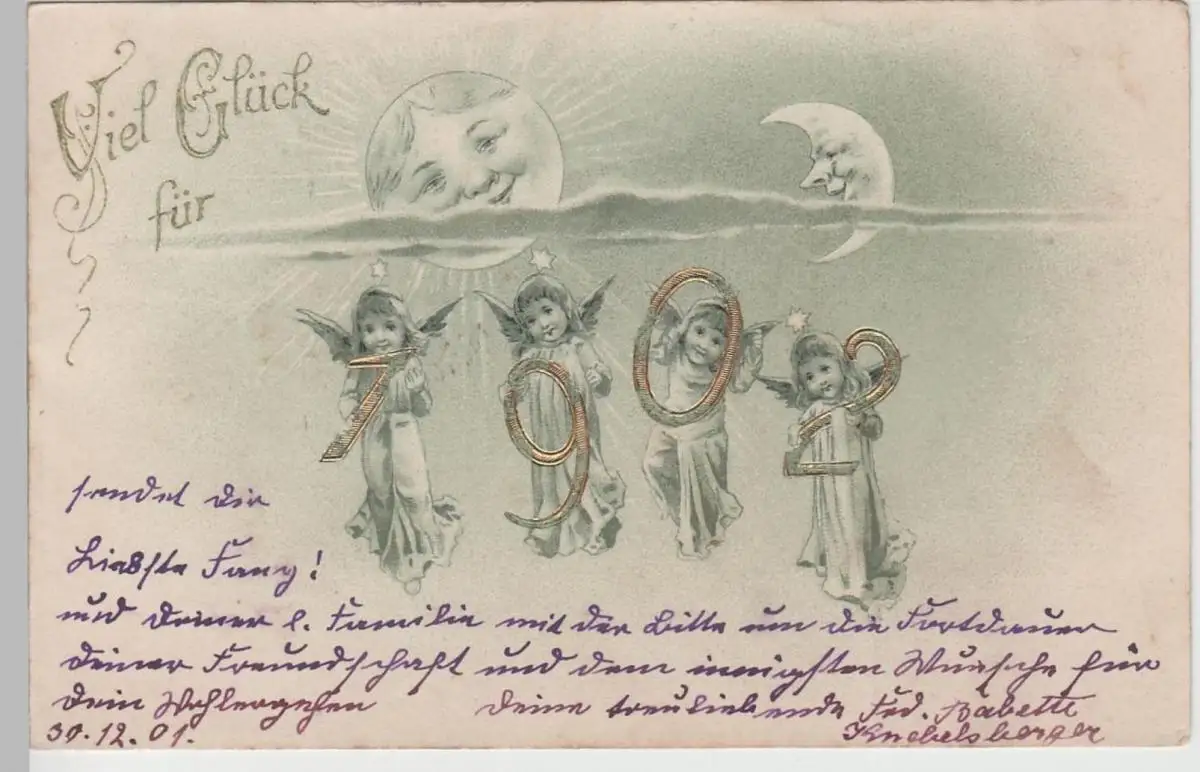 Viel Glück
für
1902
sendet dir
Liebste Fany!
und deiner l. Familie mit der Bitte um die Fortdauer
deiner Freundschaft und dem innigsten Wunsche für
dein Wohlergehen deine treuliebende Frd. Babette
30.12.01. Knebelsberger